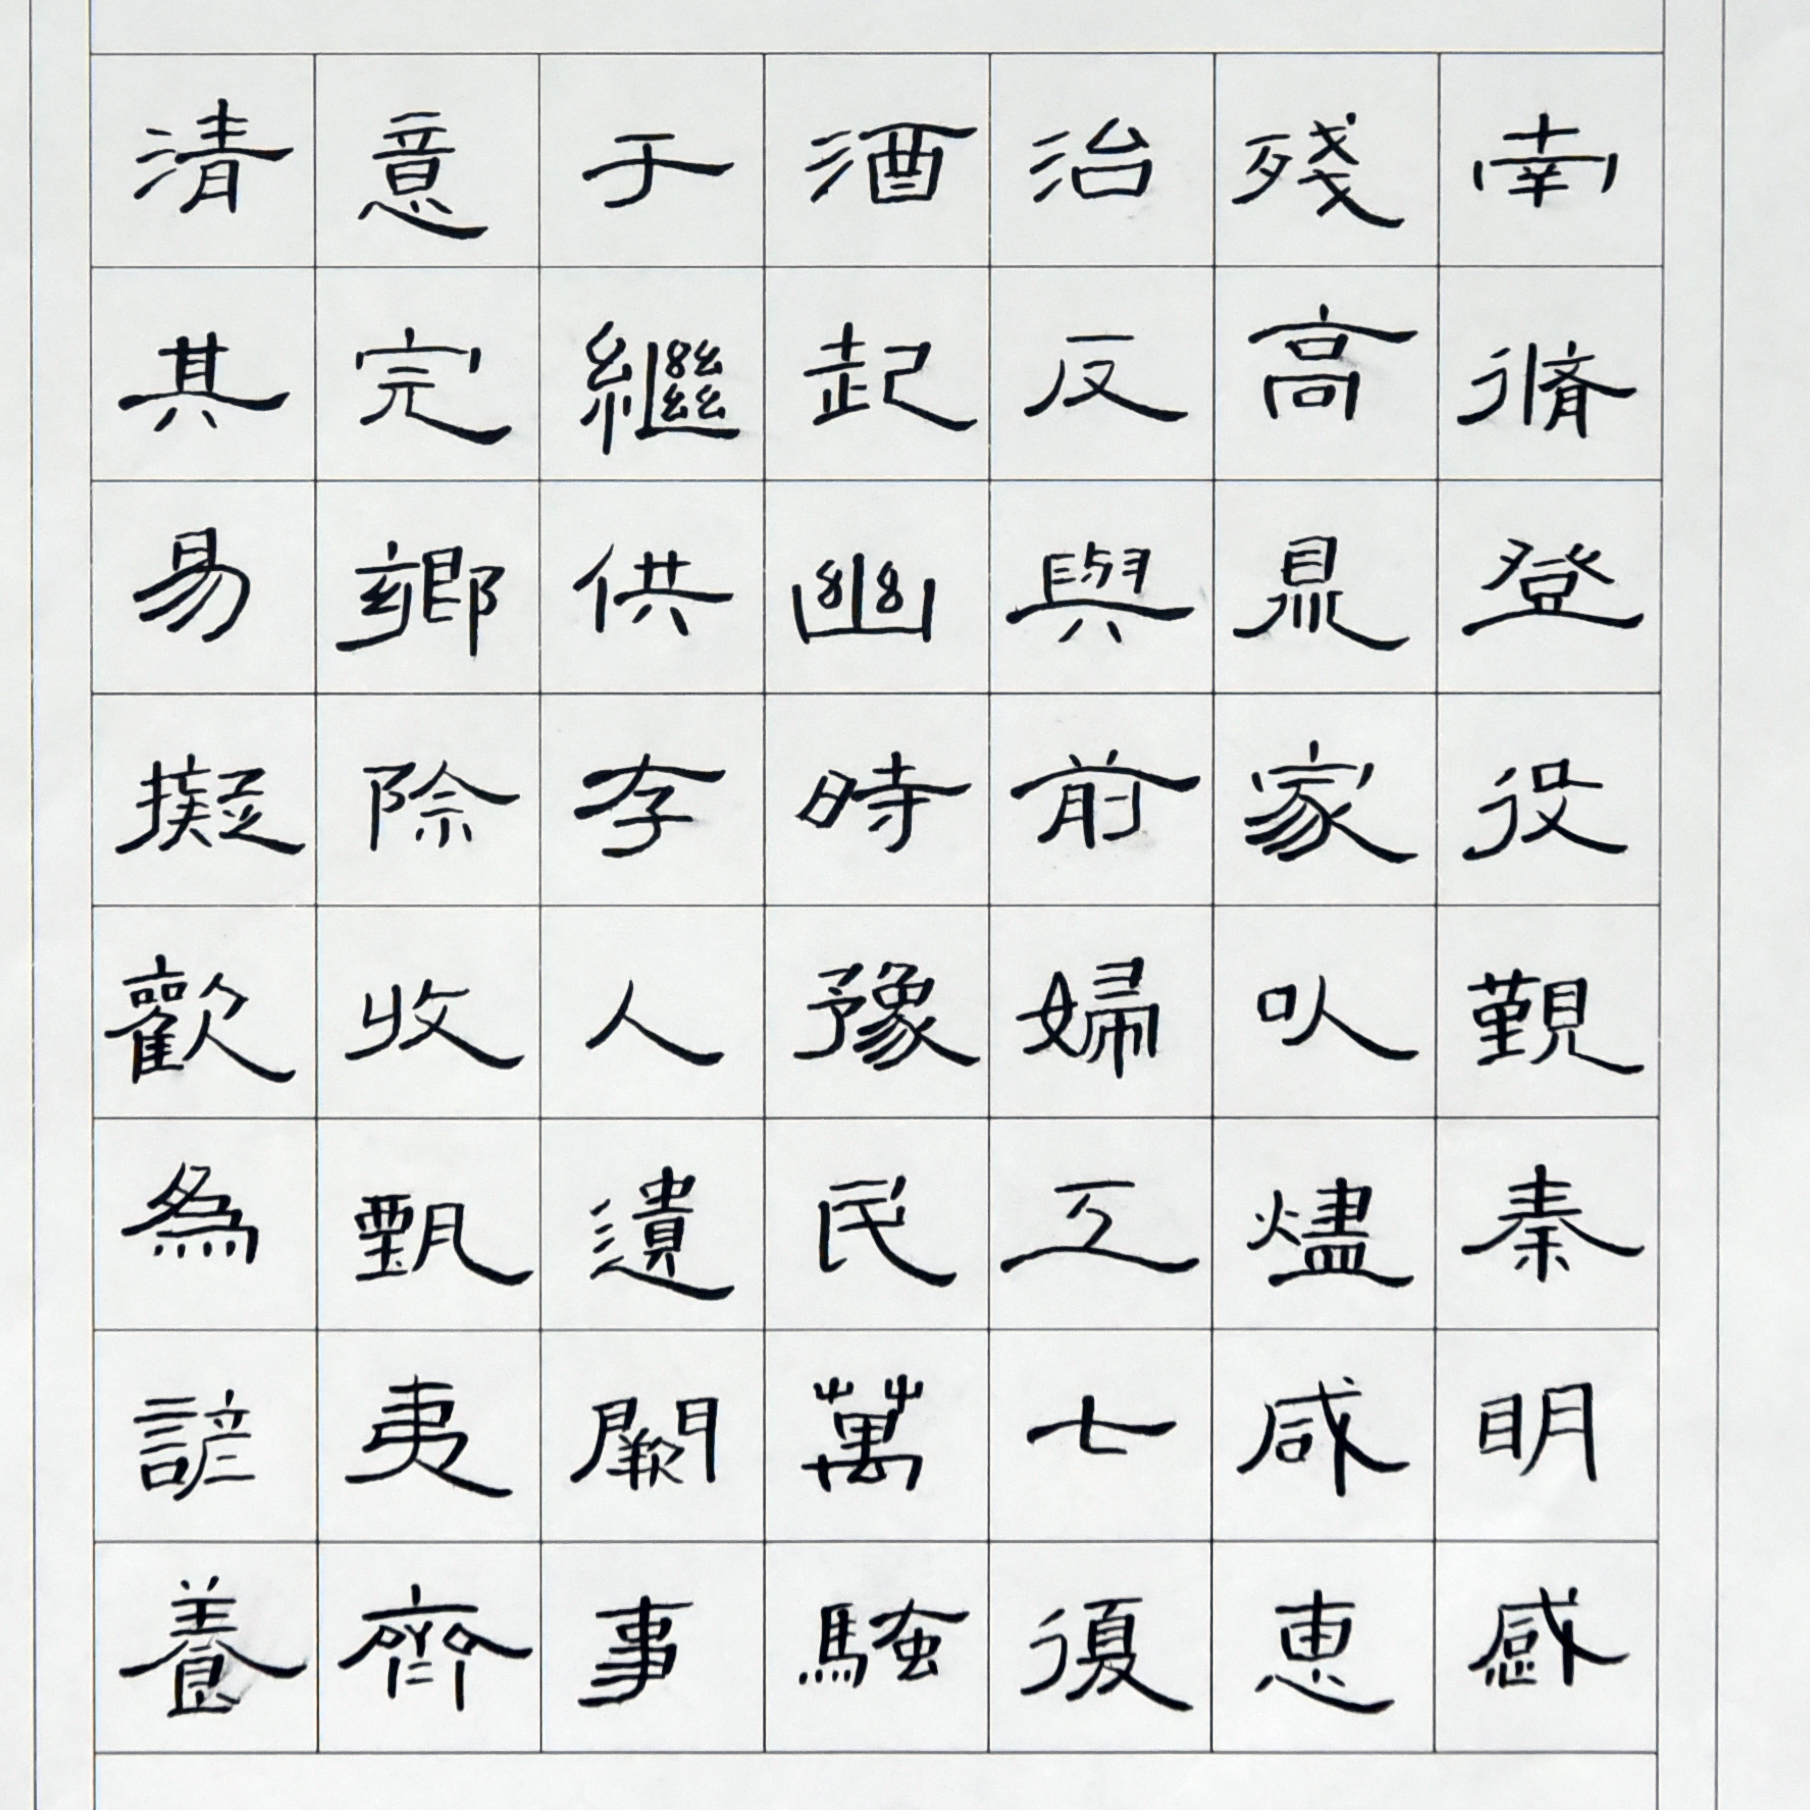 南脩登役覲秦明感
殘高鼎家以燼咸惠
治反與前婦五七復
酒起幽時豫民萬騷
于繼供存人遺闕事
意完鄉除收甄夷齊
清其易擬歡為諺養